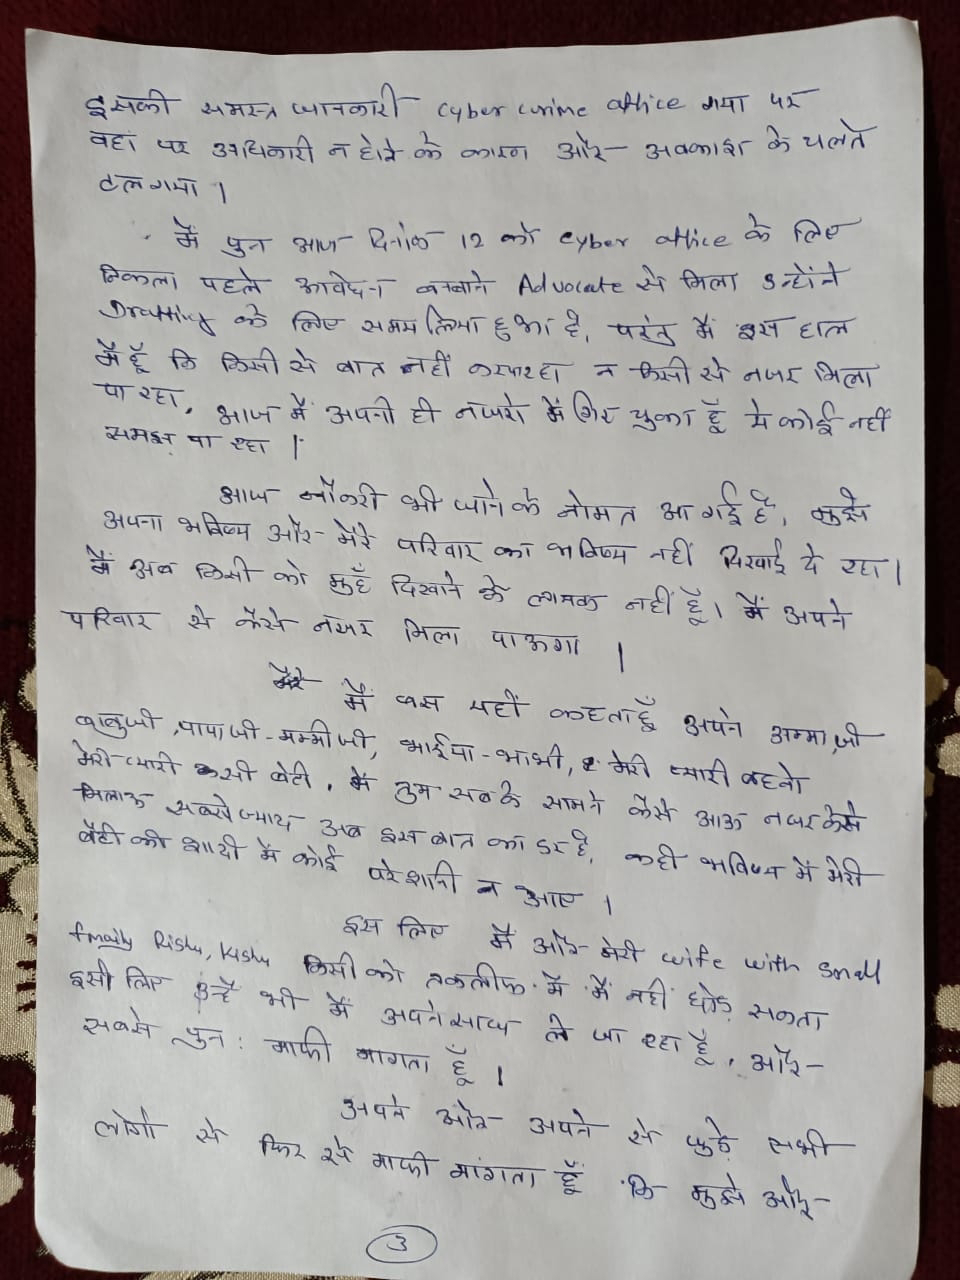 इसकी समस्त जानकारी cyber crime office गया पर
वहां पर अधिकारी न होने के कारण और अवकाश के चलते
टल गया ।
मैं पुन आज दिनांक 12 को cyber office के लिए
निकला पहले आवेदन बनवाने Advocate से मिला उन्होंने
Drafting के लिए समय लिया हुआ है, परंतु मैं इस हाल
में हूँ कि किसी से बात नहीं कर पा रहा न किसी से नजर मिला
पा रहा, आज मैं अपनी ही नजरो में गिर चुका हूँ ये कोई नहीं
समझ पा रहा ।
आज नौकरी भी जाने के नोमत आ गई है, मुझे
अपना भविष्य और मेरे परिवार का भविष्य नहीं दिखाई दे रहा ।
मैं अब किसी को मुहँ दिखाने के लायक नहीं हूँ। मैं अपने
परिवार से कैसे नजर मिला पाऊगा ।
मैं बस यहीं कहता हूँ अपने अम्मा जी
बाबुजी, पापाजी - मम्मीजी, भाईया - भाभी, मेरी प्यारी बहनो
मेरी प्यारी बेटी, मैं तुम सब के सामने कैसे आऊ नजर कैसे
मिलाऊ सबसे ज्यादा अब इस बात का डर है, कही भविष्य में मेरी
बेटी की शादी में कोई परेशानी न आए ।
इस लिए मैं और मेरी wife with small
fmaily Rishu, Kishu किसी को तकलीफ में मैं नहीं छोड़ सकता
इसी लिए उन्हें भी मैं अपने साथ ले जा रहा हूँ, और
सबसे पुन: माफी मागता हूँ ।
अपने और अपने से जुड़े सभी
लोगो से फिर से माफी मांगता हूँ कि मुझे और
3